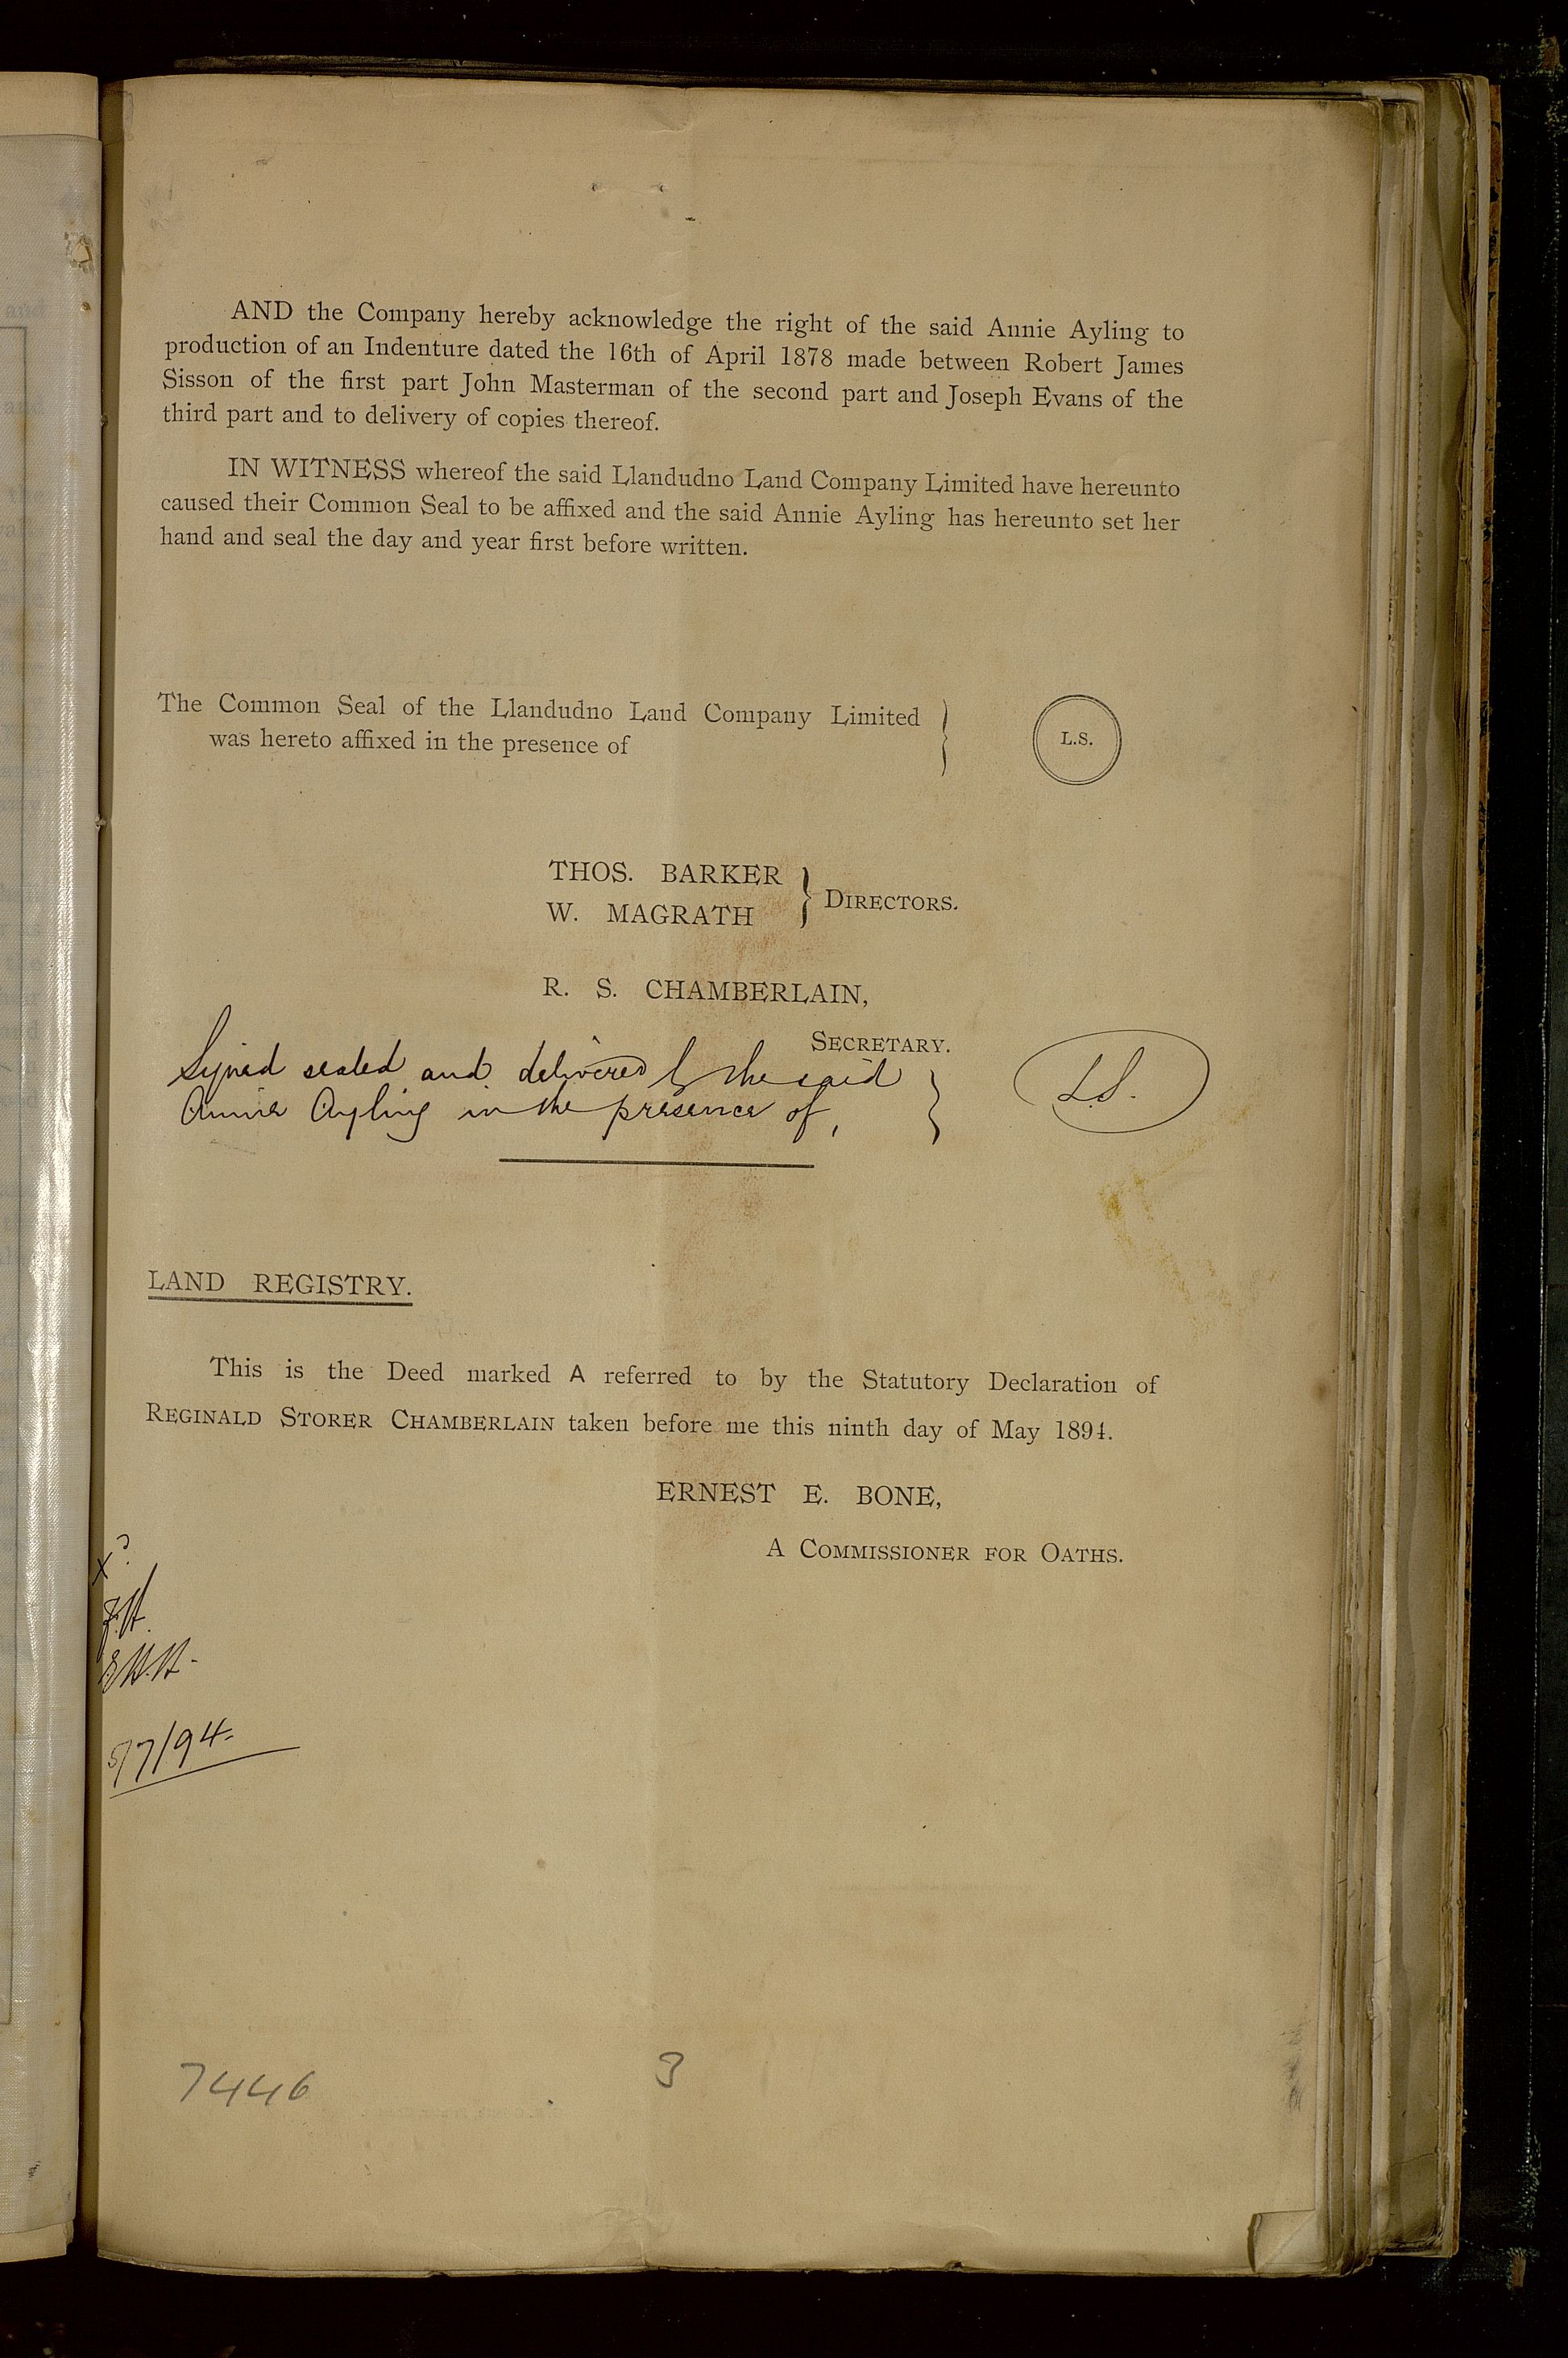 AND the Company hereby acknowledge the right of the said Annie Ayling to
production of an Indenture dated the 16th of April 1878 made between Robert James
Sisson of the first part John Masterman of the second part and Joseph Evans of the
third part and to delivery of copies thereof.
IN WITNESS whereof the said Llandudno Land Company Limited have hereunto
caused their Common Seal to be affixed and the said Annie Ayling has hereunto set her
hand and seal the day and year first before written.
The Common Seal of the Llandudno Land Company Limited
was hereto affixed in the presence of
L.S.
THOS. BARKER
W. MAGRATH
DIRECTORS.
R. S. CHAMBERLAIN,
SECRETARY.
Signed sealed and delivered by the said
Annie Ayling in the presence of,
L.S.
LAND REGISTRY.
This is the Deed marked A referred to by the Statutory Declaration of
REGINALD STORER CHAMBERLAIN taken before me this ninth day of May 1894.
ERNEST E. BONE,
A COMMISSIONER FOR OATHS.
5/7/94
7446
3